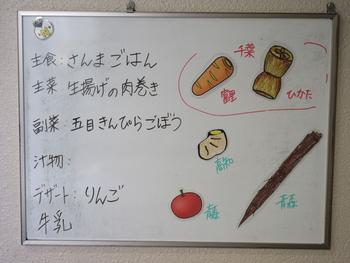 主食：さんまごはん
主菜 生揚げの肉巻き
副菜：五目きんぴらごぼう
汁物：
デザート：りんご
牛乳
千葉
ひかた
高知
青森
青森